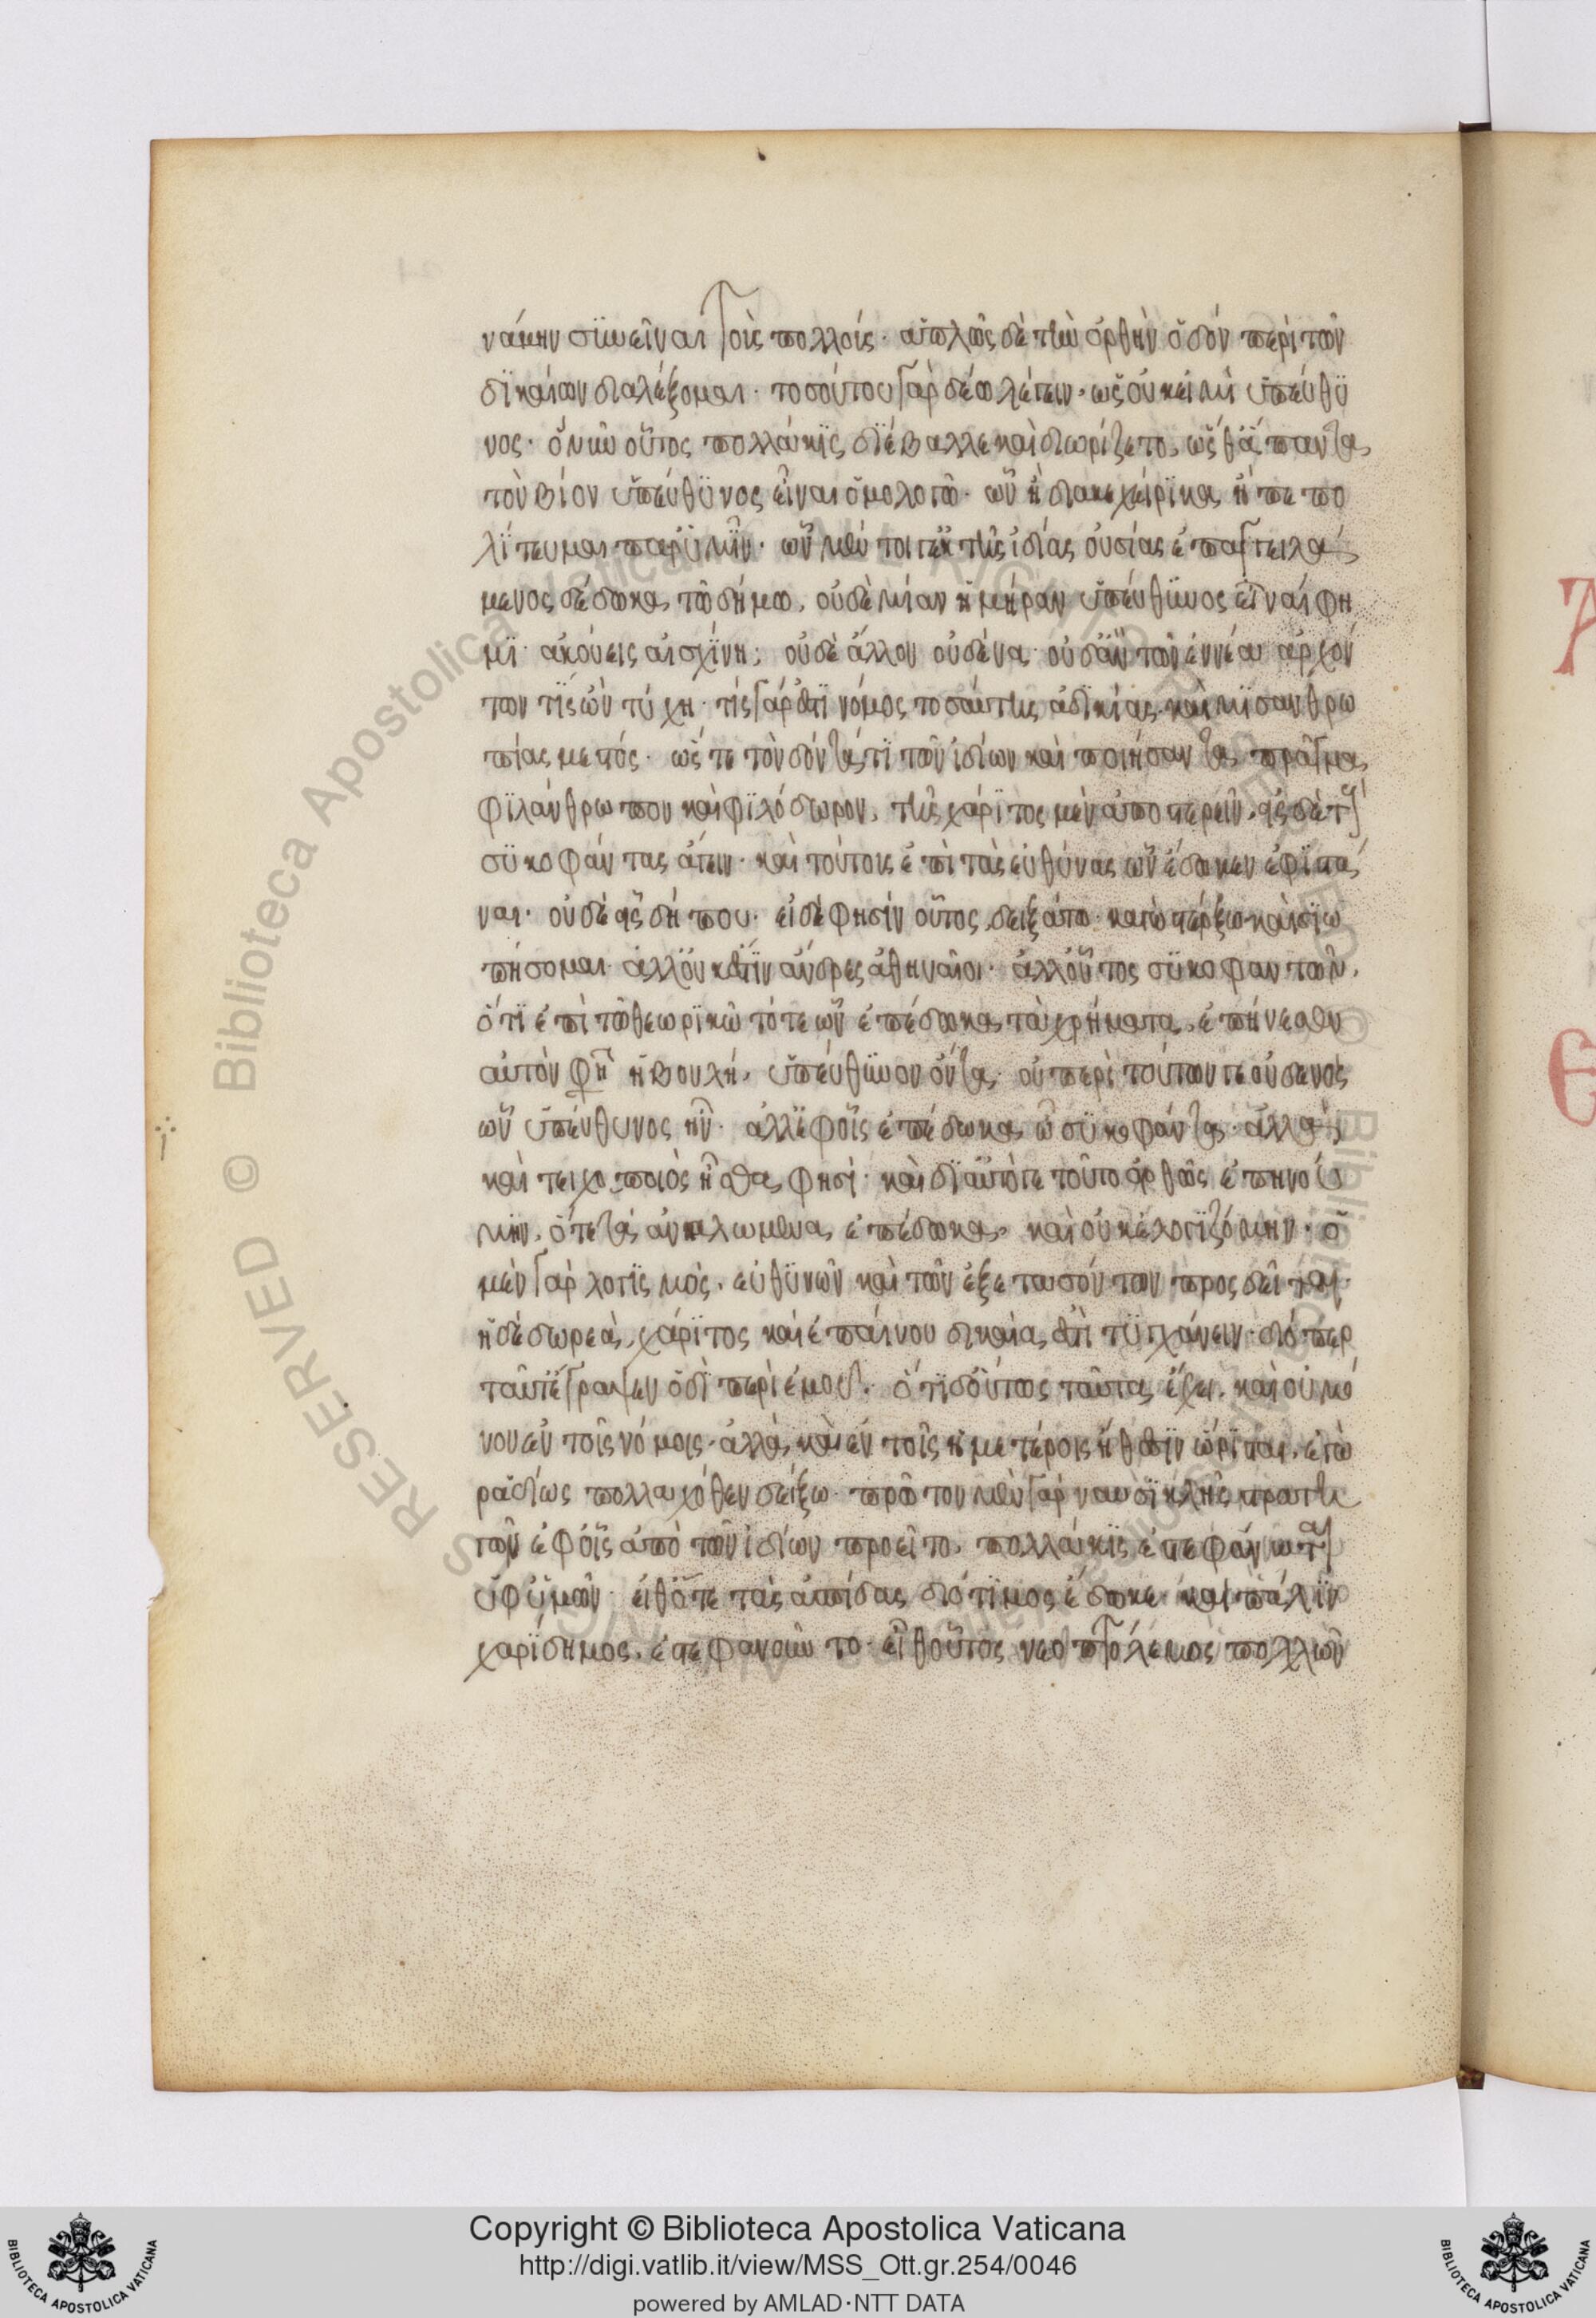 νάμην συνεῖναι τοῖς πολλοῖς· ἁπλῶς δὲ τὴν ὀρθὴν ὁδόν περὶ τῶν
δϊκαίων διαλέξομαι· τοσούτου γὰρ δέω λέγειν, ὡς οὐκ εἰμὶ ὑπεύθϋ
νος· ὃ νῦν οὗτος πολλάκϊς διέβαλλε καὶ διωρίζετο, ὥσθ' ἅπαντα
τὸν βίον ὑπεύθϋνος εἶναι ὁμολογῶ· ὧν ἢ διακεχείρϊκα ἢ πεπο
λίτευμαι παρ' ὑμῖν· ὧν μέντοι γ' ἐκ τῆς ἰδίας οὐσίας ἐπαγγειλά
μενος δέδωκα τῶ δήμω, οὐδεμίαν ἡμέραν ὑπεύθυνος εἶναί φη
μϊ· ἀκούεις αἰσχίνη; οὐδὲ ἄλλον οὐδένα· οὐδ' ἂν τῶν ἐννέα ἀρχόν
των τὶς ὢν τύχη· τίς γάρ ἐστϊ νόμος τοσαύτης ἀδϊκίας καὶ μϊσανθρω
πίας μεστός· ὥστε τὸν δόντά τϊ τῶν ἰδίων καὶ ποιήσαντα πρᾶγμα
φϊλάνθρωπον καὶ φϊλόδωρον, τῆς χάρϊτος μὲν ἀποστερεῖν, εἰς δὲ τοὺς
συκοφάντας ἄγειν· καὶ τούτους ἐπὶ τὰς εὐθύνας ὧν ἔδωκεν ἐφϊστά
ναι· οὐδὲ εἷς δή που· εἰ δέ φησίν οὗτος, δειξάτω· κἀγὼ στέρξω καὶ σϊω
πήσομαι· ἀλλ' οὐκ ἔστϊν ἄνδρες ἀθηναῖοι· ἀλλ' οὗτος συκοφαντῶν,
ὅτϊ ἐπὶ τῶ θεωρϊκῶ τότε ὢν ἐπέδωκα τὰ χρήματα, ἐπήνεσεν
αὐτὸν φησὶ ἡ βουλή, ὑπεύθυνον ὄντα· οὐ περὶ τούτων γε οὐδενὸς
ὧν ὑπεύθυνος ἦν· ἀλλ' ἐφ' οἷς ἐπέδωκα ὦ συκοφάντα· ἀλλὰ
καὶ τειχοποιὸς ἦσθα φησϊ· καὶ δι' αὐτό γε τοῦτο ὀρθῶς ἐπηνού
μην, ὅτι τἀνηλωμένα ἐπέδωκα, καὶ οὐκ ἐλογϊζόμην· ὁ
μὲν γὰρ λογϊσμὸς, εὐθϋνῶν καὶ τῶν ἐξετασόντων προσδεῖται·
ἡ δὲ δωρεὰ, χάρϊτος καὶ ἐπαίνου δικαία ἐστὶ τϋγχάνειν· διόπερ
ταῦτ' ἔγραψεν ὁδὶ περὶ ἐμοῦ. ὅτϊ δ' οὕτως ταῦτα ἔχει, καὶ οὐ μό
νον ἐν τοῖς νόμοις, ἀλλὰ καὶ ἐν τοῖς ἡμετέροις ἤθεσϊν ὥρϊσται, ἐγὼ
ραδίως πολλαχόθεν δείξω· πρῶτον μὲν γὰρ ναυσϊκλῆς στρατη
γῶν ἐφ' οἷς ἀπὸ τῶν ἰδίων προεῖτο, πολλάκϊς ἐστεφάνωται
ὑφ' ὑμῶν· εἶθ' ὅτε τὰς ἀσπίδας διότϊμος ἔδωκε καὶ πάλϊν
χαρϊδημος, ἐστεφανοῦντο· εἶθ' οὗτος νεοπτόλεμος πολλῶν
Copyright © Biblioteca Apostolica Vaticana
http://digi.vatlib.it/view/MSS_Ott.gr.254/0046
powered by AMLAD·NTT DATA